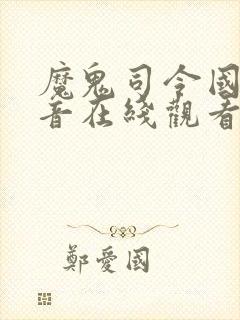 魔鬼司令國
音在綫觀看
鄭愛國